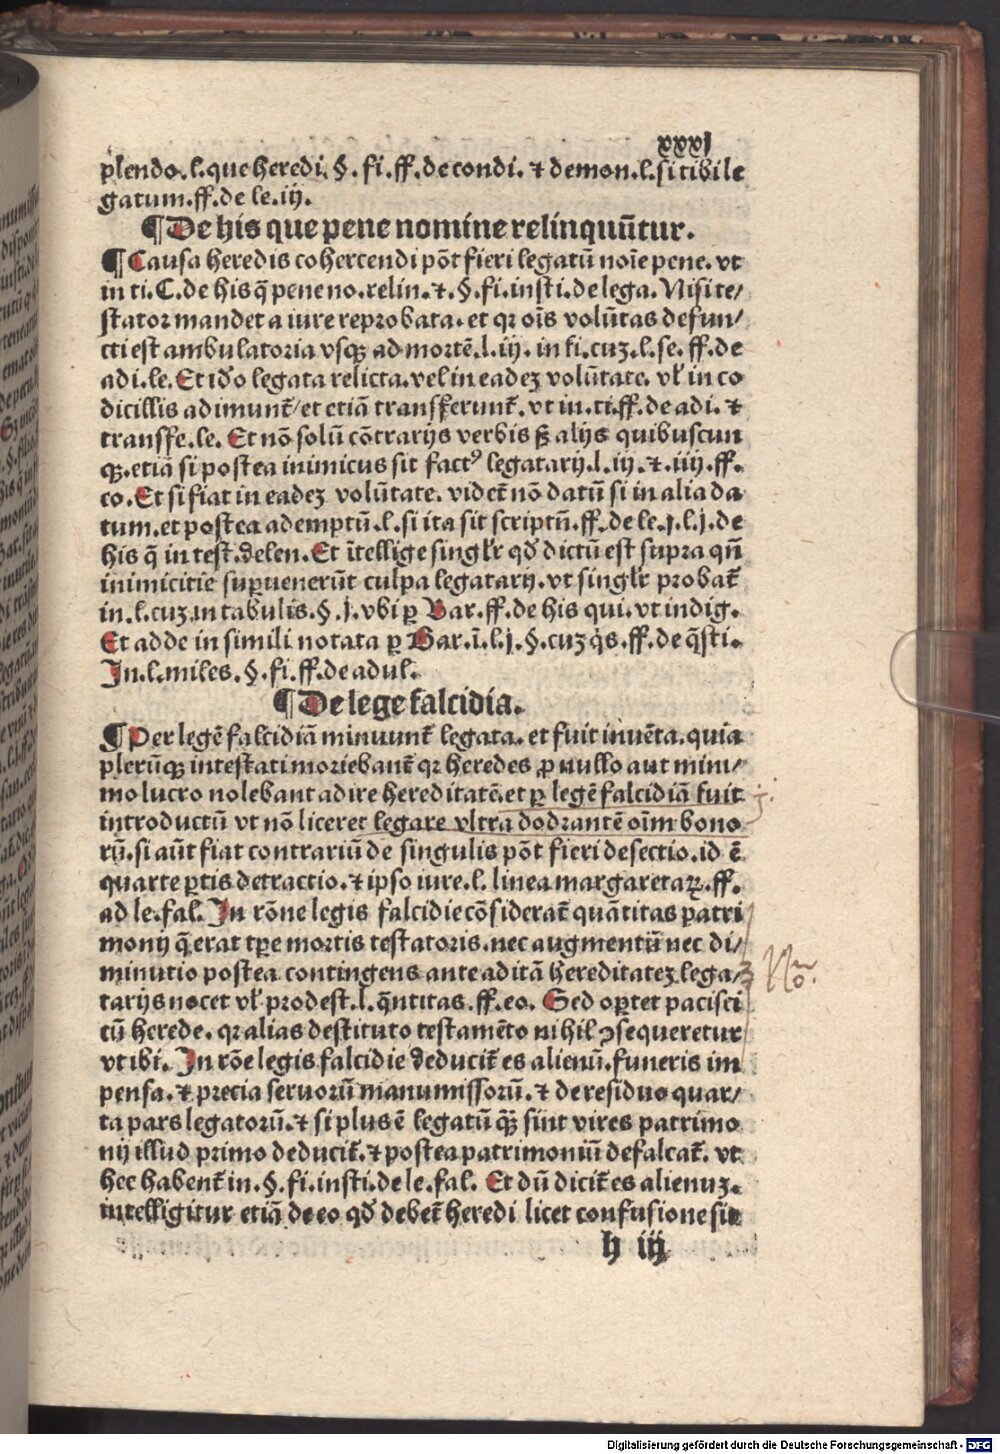 xxxj
plendo.l.que heredi.§.fi.ff.de condi.⁊ demon.l.si tibi le
gatum.ff.de le.iij.
¶De his que pene nomine relinquūtur.
¶Causa heredis cohercendi pōt fieri legatū noīe pene.vt
in ti.C.de his q̄ pene no.relin.⁊.§.fi.insti.de lega.Nisi te/
stator mandet a iure reprobata.et qꝛ oīs volūtas defun/
cti est ambulatoria vsqꝫ ad mortē.l.iij.in fi.cuꝫ.l.se.ff.de
adi.le.Et iđo legata relicta.vel in eadeꝫ volūtate.vł in co
dicillis adimunt̄/et etiā transferunt̄.vt in.ti.ff.de adi.⁊
transfe.le.Et nō solū cōtrarijs verbis ß alijs quibuscun
qꝫ.etiā si postea inimicus sit factꝰ legatarij.l.iij.⁊.iiij.ff.
eo.Et si fiat in eadeꝫ volūtate.videt̄ nō datū si in alia da
tum.et postea ademptū.l.si ita sit scriptū.ff.de le.j.l.j.de
his q̄ in test.delen.Et ītellige singłr qđ dictū est supra qn̄
inimicitie suꝑuenerūt culpa legatarij.vt singłr probat̄
in.l.cuꝫ in tabulis.§.j.vbi ꝑ Bar.ff.de his qui.vt indig.
Et adde in simili notata ꝑ Bar.ī.l.j.§.cuꝫ q̇s.ff.de q̄sti.
In.l.miles.§.fi.ff.de adul.
¶De lege falcidia.
¶Per legē falcidiā minuunt̄ legata.et fuit inuēta.quia
plerūqꝫ intestati moriebant̄ qꝛ heredes ꝓ nullo aut mini/
mo lucro nolebant adire hereditatē.et ꝑ legē falcidiā fuit
introductū vt nō liceret legare vltra dodrantē oīm bono
rū.si aūt fiat contrariū de singulis pōt fieri defectio.id ē
quarte ꝑtis detractio.⁊ ipso iure.l.linea margaretaꝝ.ff.
ad le.fal.In rōne legis falcidie cōsiderat̄ quātitas patri
monij q̄ erat tꝑe mortis testatoris.nec augmentū nec di/
minutio postea contingens ante aditā hereditateꝫ lega/
tarijs nocet vł prodest.l.q̄ntitas.ff.eo.Sed oꝑtet pacisci
cū herede.qꝛ alias destituto testamēto nihil ꝯsequeretur
No.
vt ibi.In rōe legis falcidie deducit̄ es alienū.funeris im
pensa.⁊ precia seruorū manumissorū.⁊ de residuo quar/
ta pars legatorū.⁊ si plus ē legatū qꝫ̄ sint vires patrimo
nij illud primo deducit̄.⁊ postea patrimoniū defalcat̄.vt
hec habent̄ in.§.fi.insti.de le.fal.Et dū dicit̄ es alienuꝫ.
intelligitur etiā de eo qđ debet̄ heredi licet confusione sit
h iij
Digitalisierung gefördert durch die Deutsche Forschungsgemeinschaft - DFG